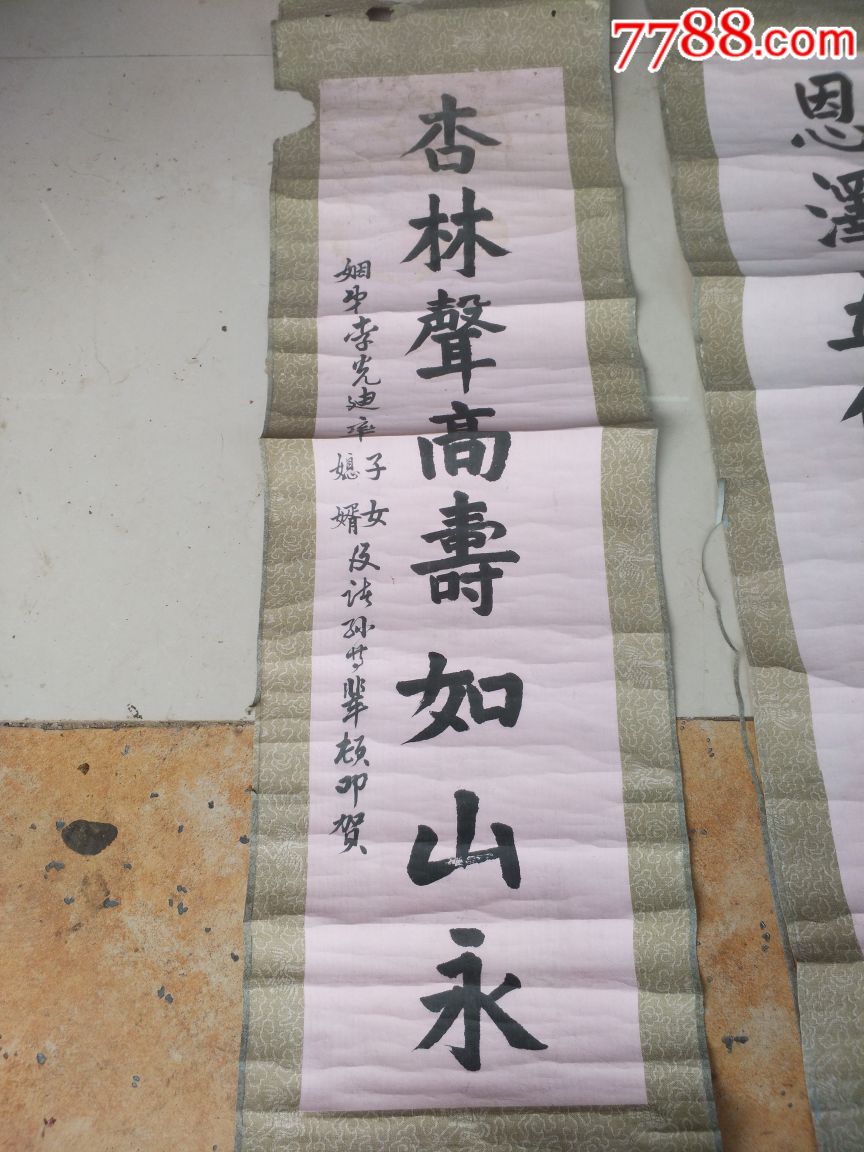 7788.com
恩澤
杏林聲高壽如山永
姻弟李光迪率子媳女婿及諸孫等輩頓叩賀